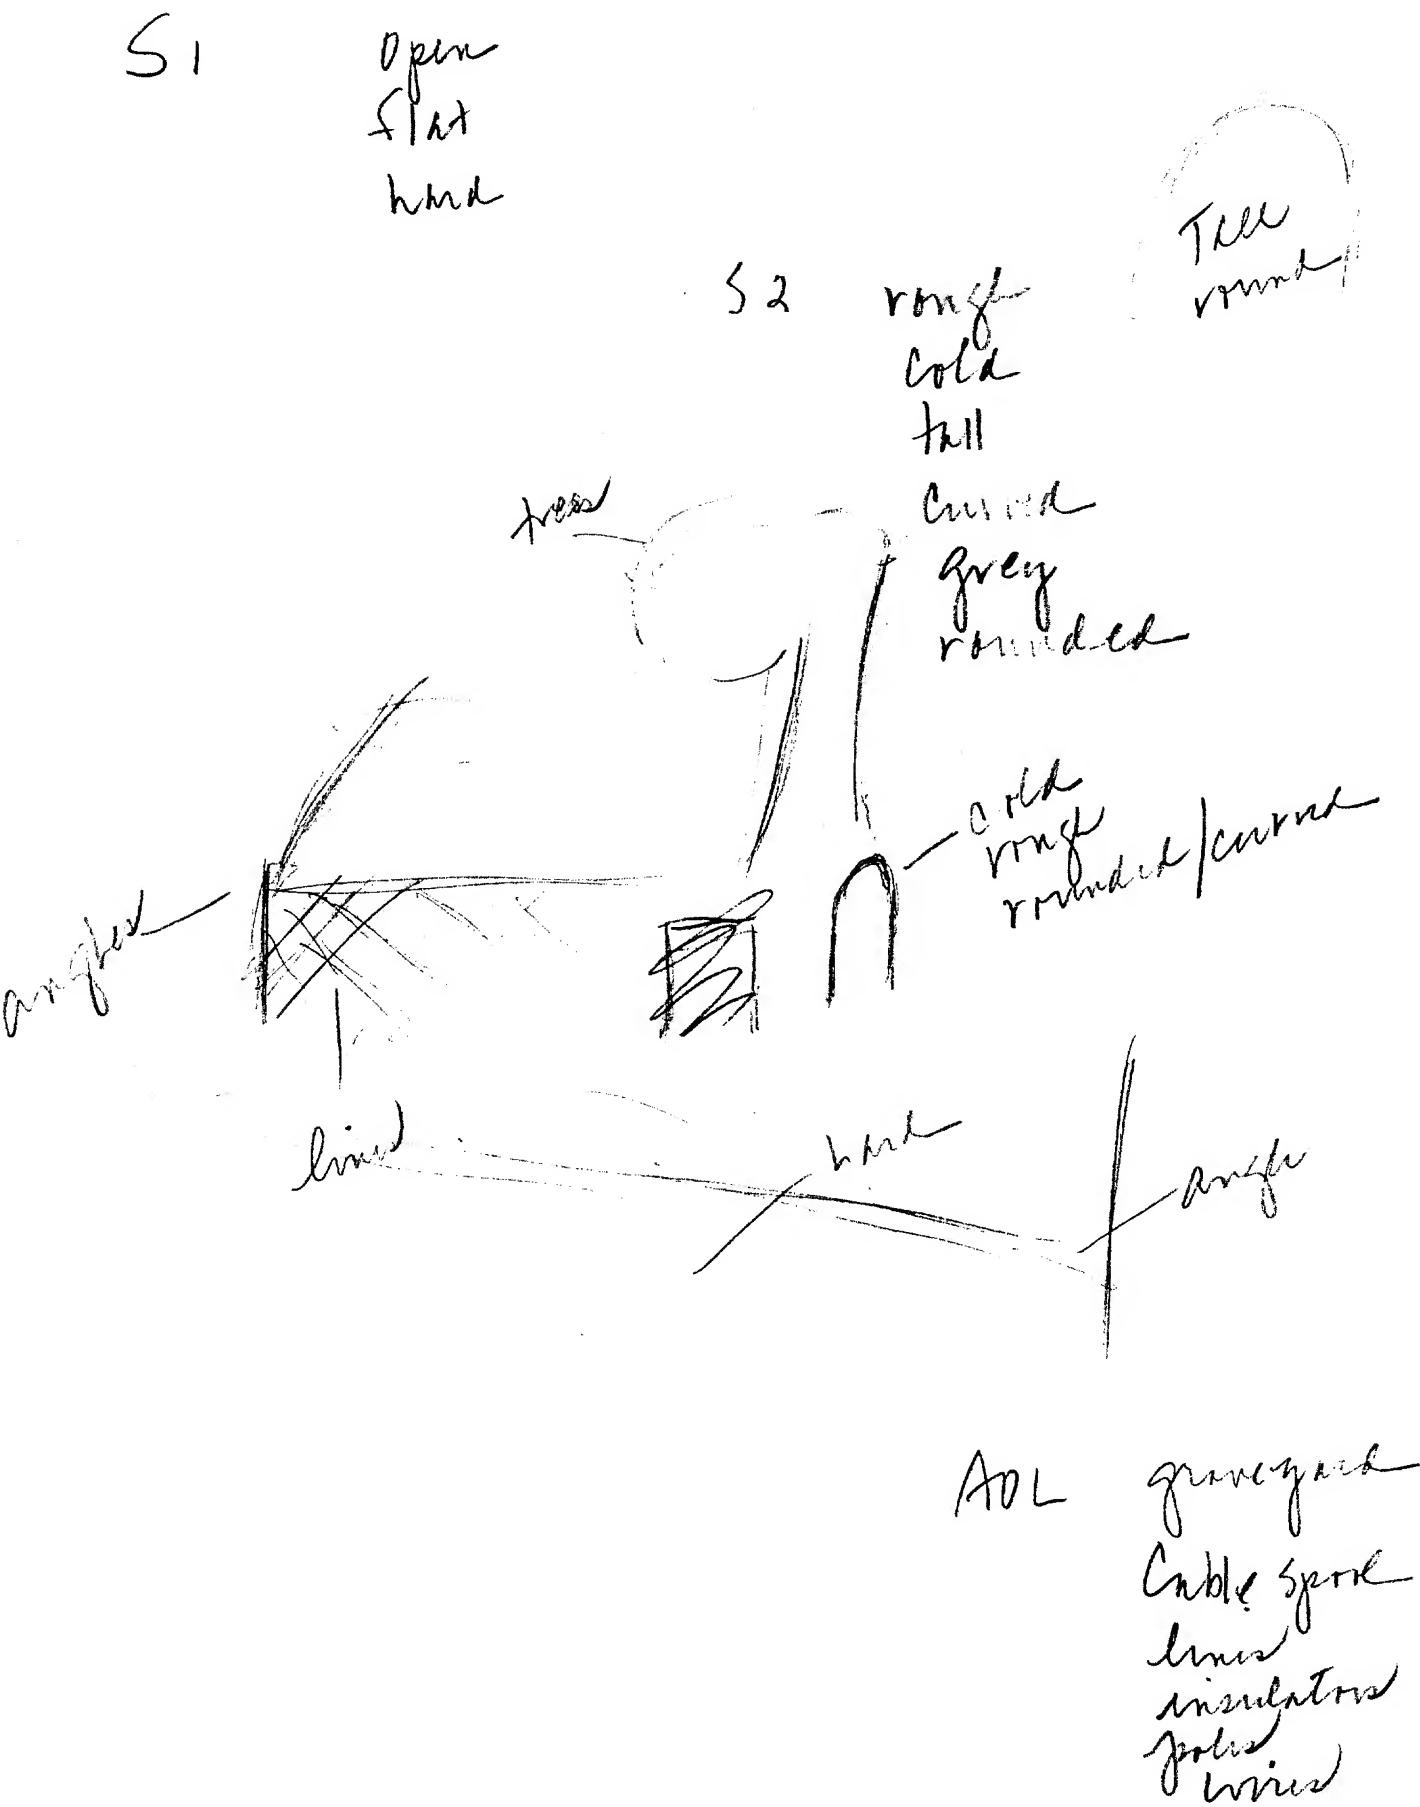 S1 Open
flat
hard
Tall
round
S2 rough
cold
tall
curved
grey
rounded
trees
cold
rough
rounded/curved
angles
lines
hard
angle
AOL graveyard
Cable spool
lines
insulators
poles
wires